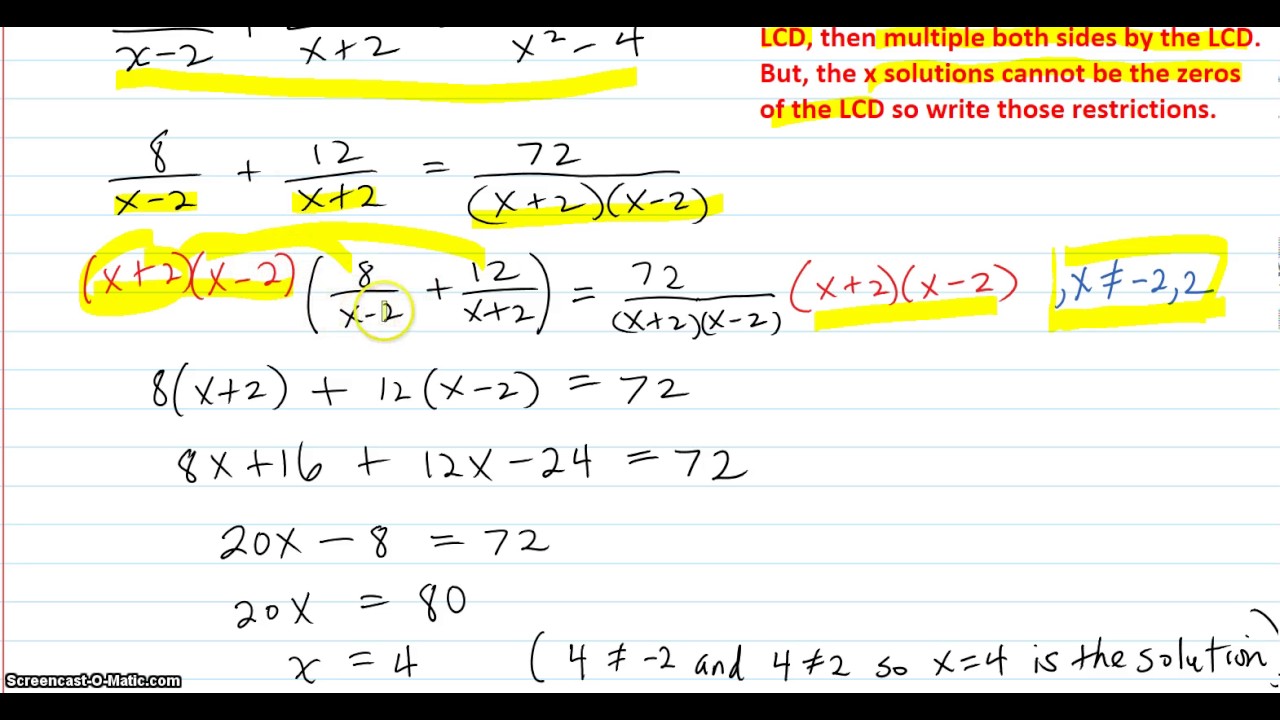 LCD, then multiple both sides by the LCD.
But, the x solutions cannot be the zeros
of the LCD so write those restrictions.
x-2 + x+2 x² - 4
8/(x-2) + 12/(x+2) = 72/((x+2)(x-2))
(x+2)(x-2) (8/(x-2) + 12/(x+2)) = 72/((x+2)(x-2)) (x+2)(x-2) , x ≠ -2, 2
8(x+2) + 12(x-2) = 72
8x+16 + 12x-24 = 72
20x - 8 = 72
20x = 80
x = 4 (4 ≠ -2 and 4 ≠ 2 so x=4 is the solution)
Screencast-O-Matic.com